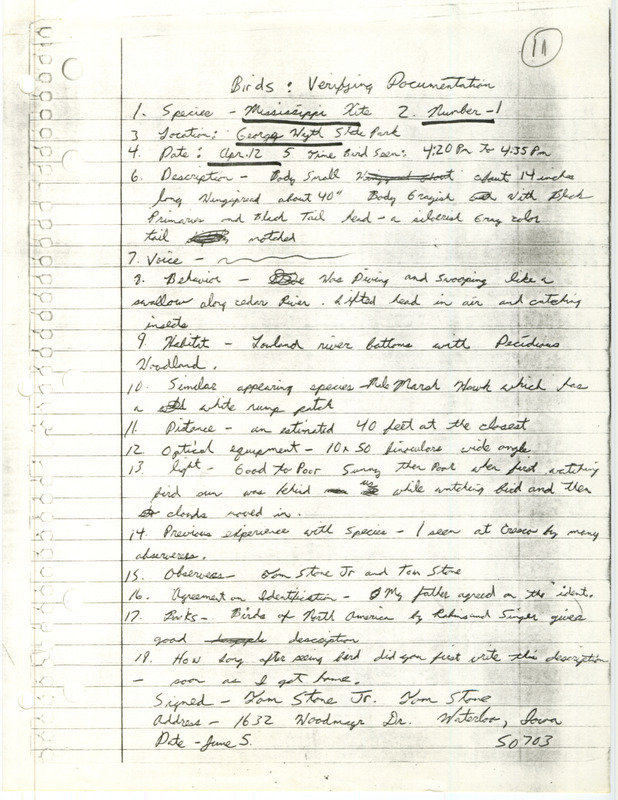 11
Birds: Verifying Documentation
1. Species - Mississippi Kite 2. Number - 1
3 Location: George Wyth State Park
4. Date: Apr. 12 5 Time Bird Seen: 4:20 Pm To 4:35 Pm
6. Description - Body Small about 14 inches
long Wingspread about 40" Body Grayish With Black
Primaries and Black Tail head - a silverish Gray color
tail notched
7. Voice -
8. Behavior - Was Diving and Swooping like a
swallow along cedar River. Lifted head in air and catching
insects
9. Habitat - Lowland river bottoms with Decidious
Woodland.
10. Similar appearing species - Male Marsh Hawk which has
a white rump patch
11. Distance - an estimated 40 feet at the closest
12. Optical equipment - 10x50 binoculars wide angle
13 light - Good to Poor Sunny then Poor when first watching
bird sun was behind us while watching bird and then
clouds moved in.
14. Previous experience with Species - I seen at Cresco by many
observeres.
15. Observers - Tom Stone Jr and Tom Stone
16. Agreement on Identification - My father agreed on the ident.
17. Books - Birds of North America by Robins and Singer gives
good description
18. How long after seeing bird did you first write this description
- soon as I got home.
Signed - Tom Stone Jr. Tom Stone
Address - 1632 Woodmayr Dr. Waterloo, Iowa
Date - June 5. 50703